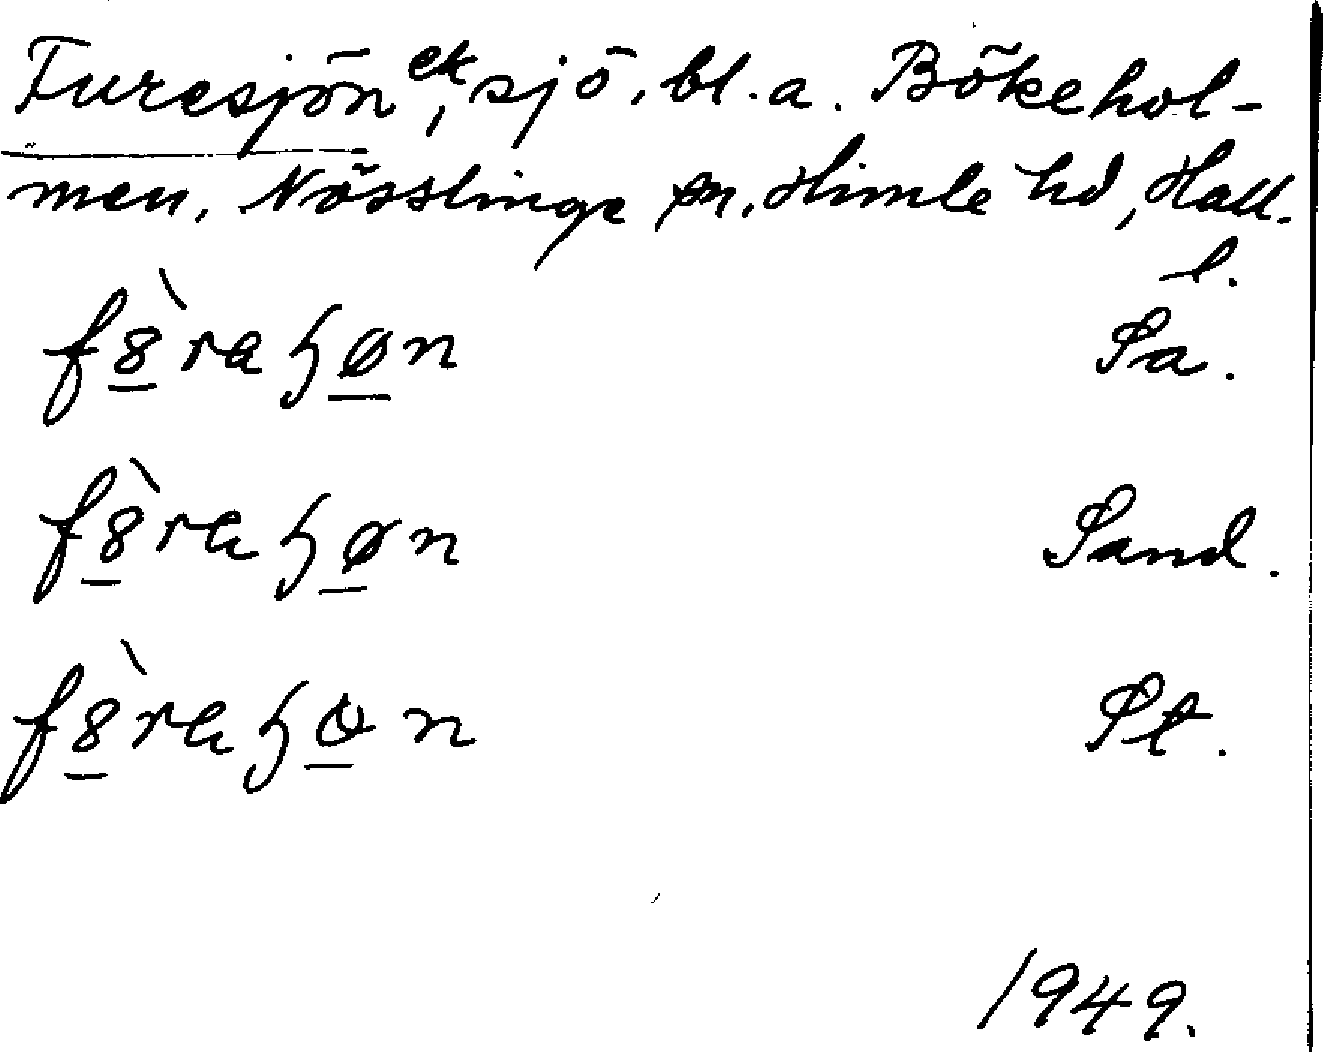 Furesjön ek, sjö, bl. a. Bökehol-
men, Nösslinge sn, Himle hd, Hall.
l.
fȣ̀raɧøn Sa.
fȣ̀raɧøn Sand.
fȣ̀raɧøn St.
1949.